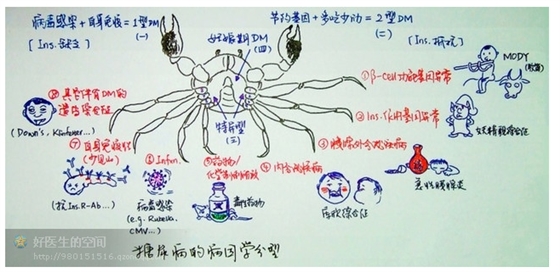 病毒感染+自身免疫=1型DM
(一)
[Ins.缺乏]
节约基因+多吃少动=2型DM
(二)
[Ins.抵抗]
妊娠期DM
(四)
特异型
(三)
MODY
①β-cell功能基因异常
②Ins.作用基因异常
妖精貌综合征
③胰腺外分泌疾病
急性胰腺炎
④内分泌疾病
库欣综合征
⑤药物/
毒性药物
⑥Infxn.
病毒感染
(e.g. Rubella,
CMV...)
⑦自身免疫
(少见)
(抗Ins.R-Ab...)
⑧其它伴有DM的
遗传综合征
(Down's, Klinfelter...)
糖尿病的病因学分型
好医生的空间